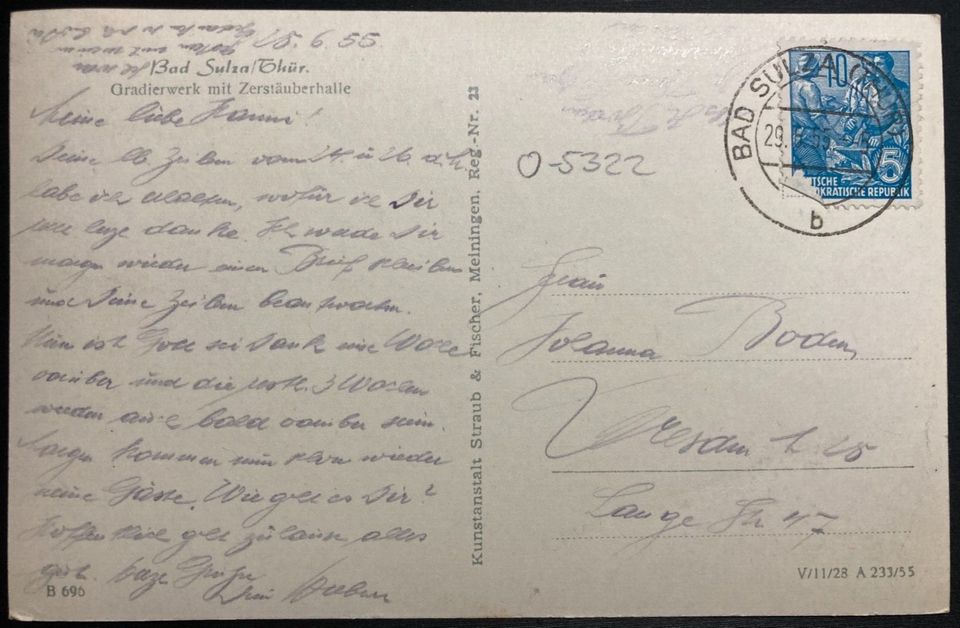 28. 6. 55
Bad Sulza/Thür.
Gradierwerk mit Zerstäuberhalle
Meine liebe Hanni!
Deine lb. Zeilen vom 24. u. 26. d. M.
habe ich erhalten, wofür ich Dir
danke. Ich werde Dir
morgen wieder einen Brief schreiben
und Deine Zeilen beantworten.
Nun ist Gott sei Dank eine Woche
vorüber und die restl. 3 Wochen
werden auch bald vorüber sein.
Morgen kommen nun schon wieder
neue Gäste. Wie geht es Dir?
Hoffentlich geht zuhause alles
gut. Grüße
Dein
B 696
Kunstanstalt Straub & Fischer, Meiningen. Reg.-Nr. 23
O-5322
BAD SULZA (THÜR)
29. 6. 55
b
10
5
DEUTSCHE
DEMOKRATISCHE REPUBLIK
Frau
Johanna Boden
Dresden A 25
Lange Str 47
V/11/28 A 233/55